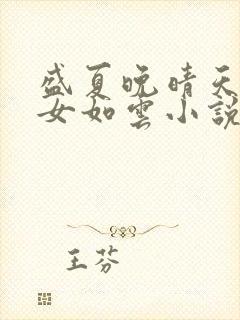 盛夏晚晴天
女如雲小說
王芬